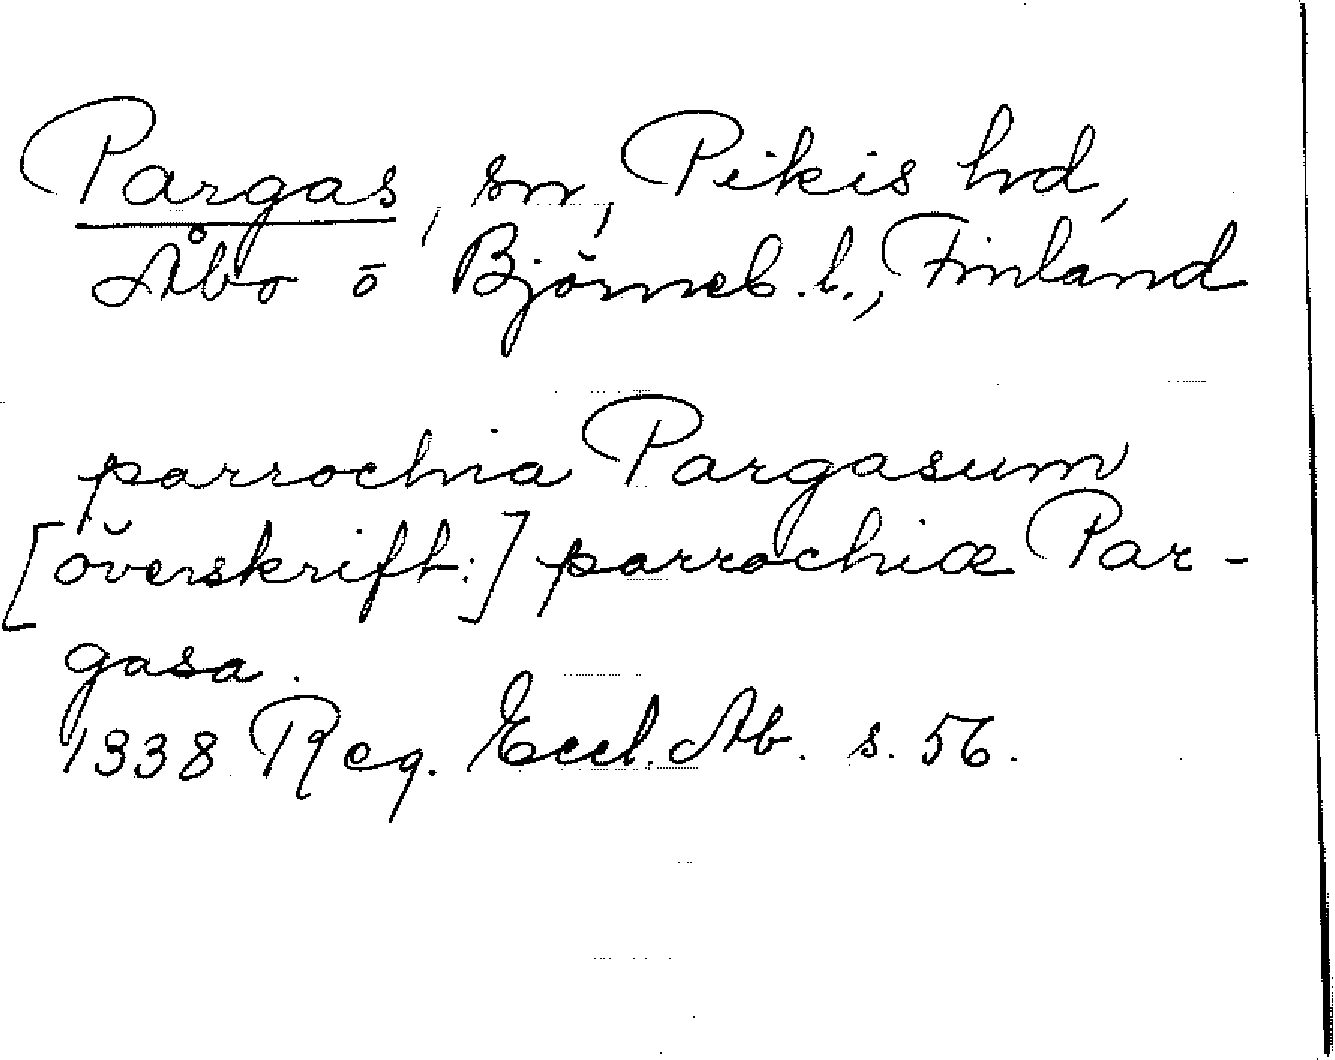 Pargas, sn, Pikis hd,
Åbo o Björneb. l., Finland
parrochia Pargasum
[överskrift:] parrochiæ Par-
gasa.
1338 Reg. Eccl. Ab. s. 56.